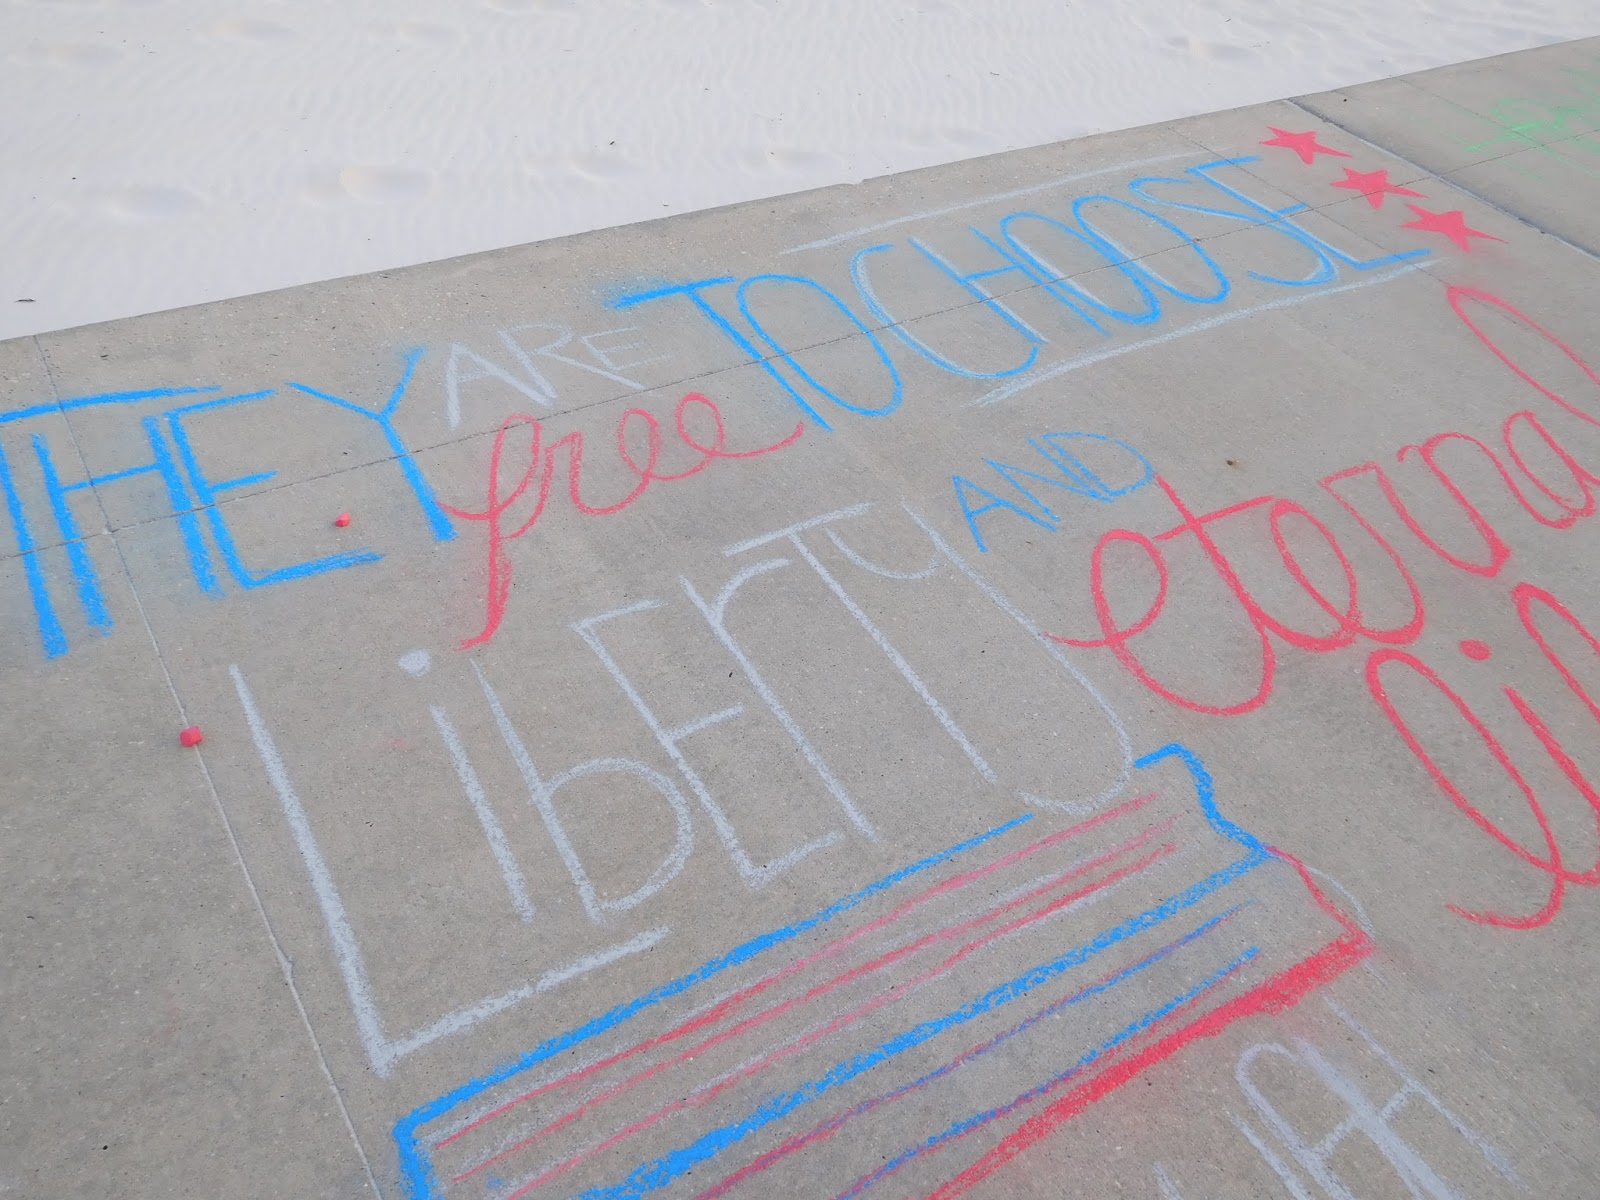 THEY ARE free TO CHOOSE
LibErTy AND eternal